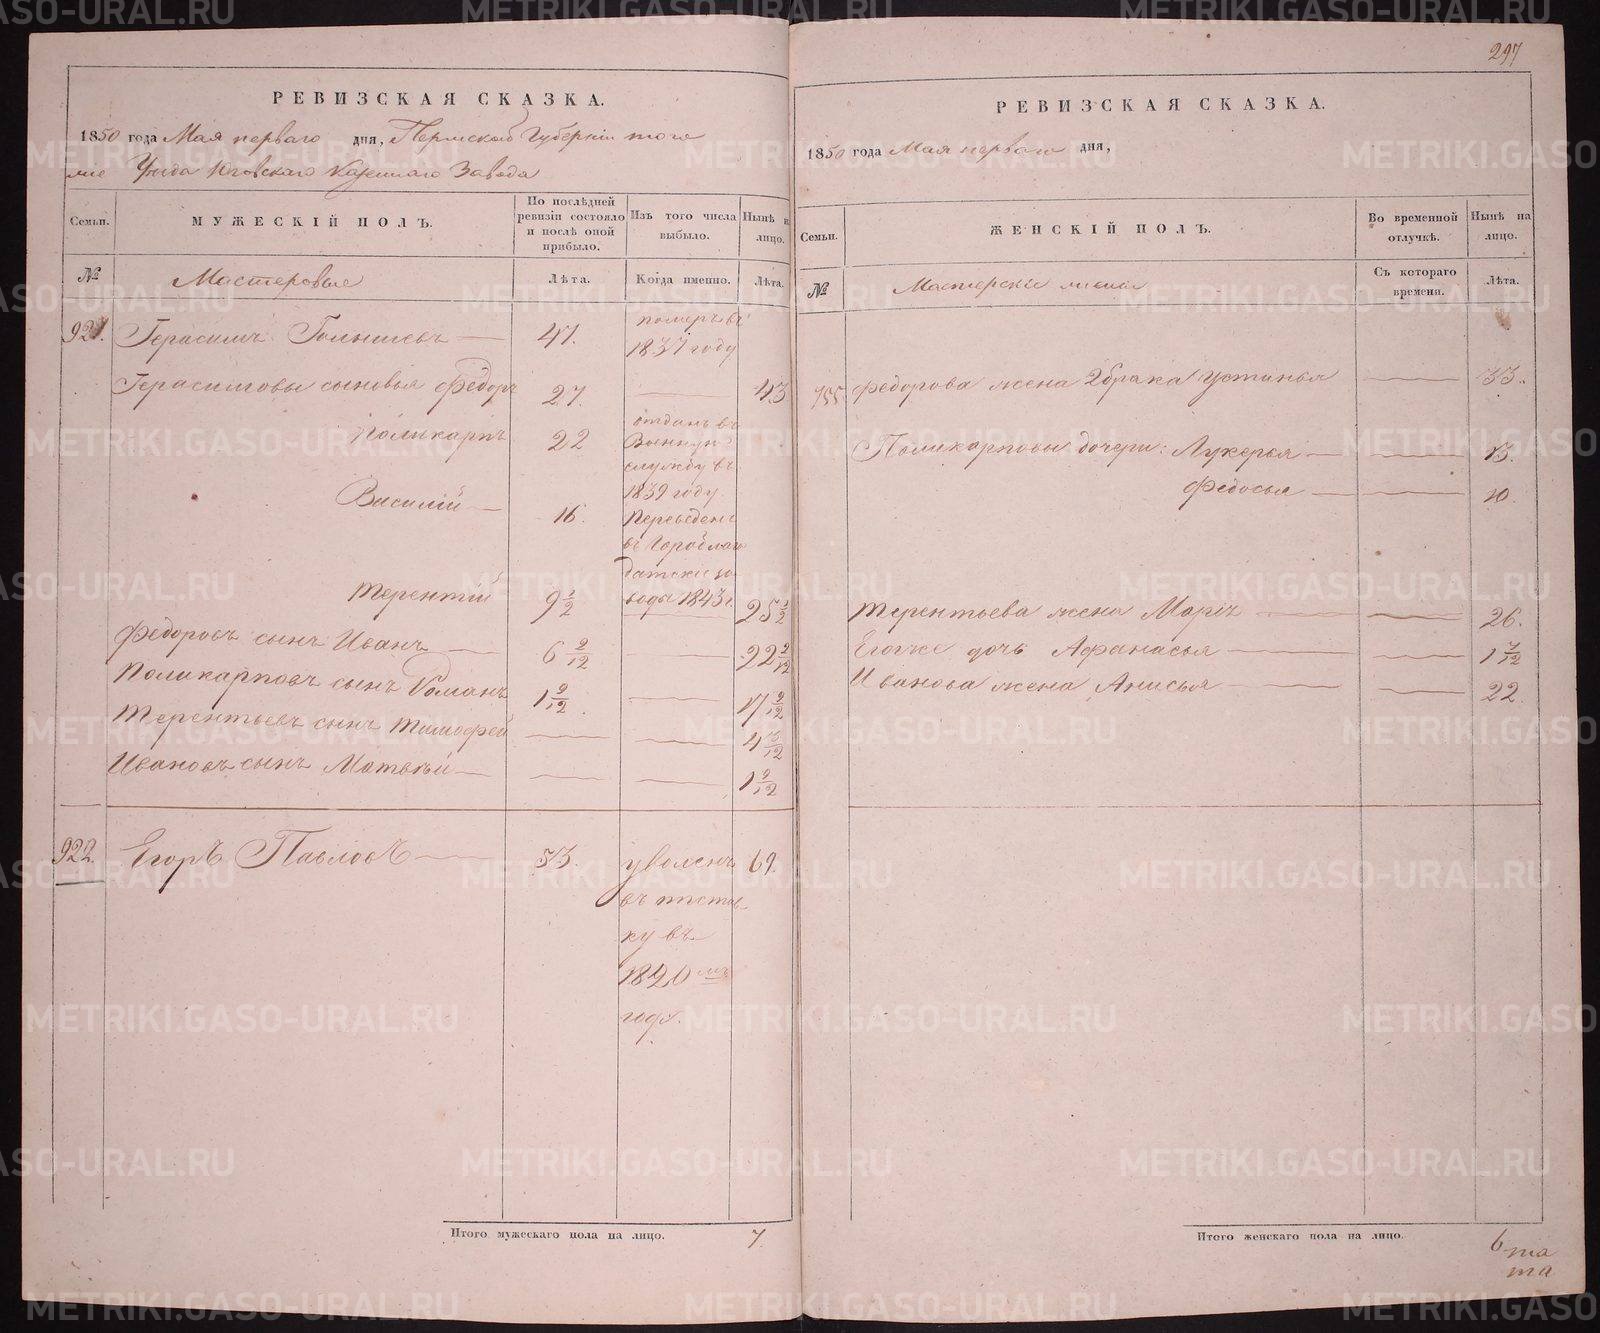 297
РЕВИЗСКАЯ СКАЗКА.
1850 года Мая перваго дня, Пермской Губерніи того
же Уезда Юговскаго Казеннаго Завода
Семьи. МУЖЕСКІЙ ПОЛЪ. По послѣдней ревизіи состояло и послѣ оной прибыло. Изъ того числа выбыло. Нынѣ на лицо.
№ Мастеровые Лѣта. Когда именно. Лѣта.
921. Герасимъ 41. померъ въ 1837 году
Герасимовы сыновья Федоръ 27. — 43
Поликарпъ 22 отданъ въ Военную службу въ 1839 году.
Василій — 16. Переведенъ въ Гороблагодатскіе заводы 1843 г.
Терентій 9 1/2 — 25 1/2
Федоровъ сынъ Иванъ — 6 2/12 — 22 2/12
Поликарповъ сынъ Романъ 1 9/12 — 17 9/12
Терентьевъ сынъ Тимофей — — 4 3/12
Ивановъ сынъ Матвѣй — — — 1 2/12
922. Егоръ Павловъ — 53. уволенъ въ отставку въ 1820 мъ году. 69.
Итого мужескаго пола на лицо. 7.
РЕВИЗСКАЯ СКАЗКА.
1850 года Мая перваго дня,
Семьи. ЖЕНСКІЙ ПОЛЪ. Во временной отлучкѣ. Нынѣ на лицо.
№ Мастерскіе Съ котораго времени. Лѣта.
755 Федорова жена 2 брака Устинья — 33.
Поликарповы дочери: Лукерья — — 13.
Федосья — — 10.
Терентьева жена Марія — — 26.
Егоже дочь Афанасья — — 1 7/12
Иванова жена Анисья — — 22.
Итого женскаго пола на лицо. 6